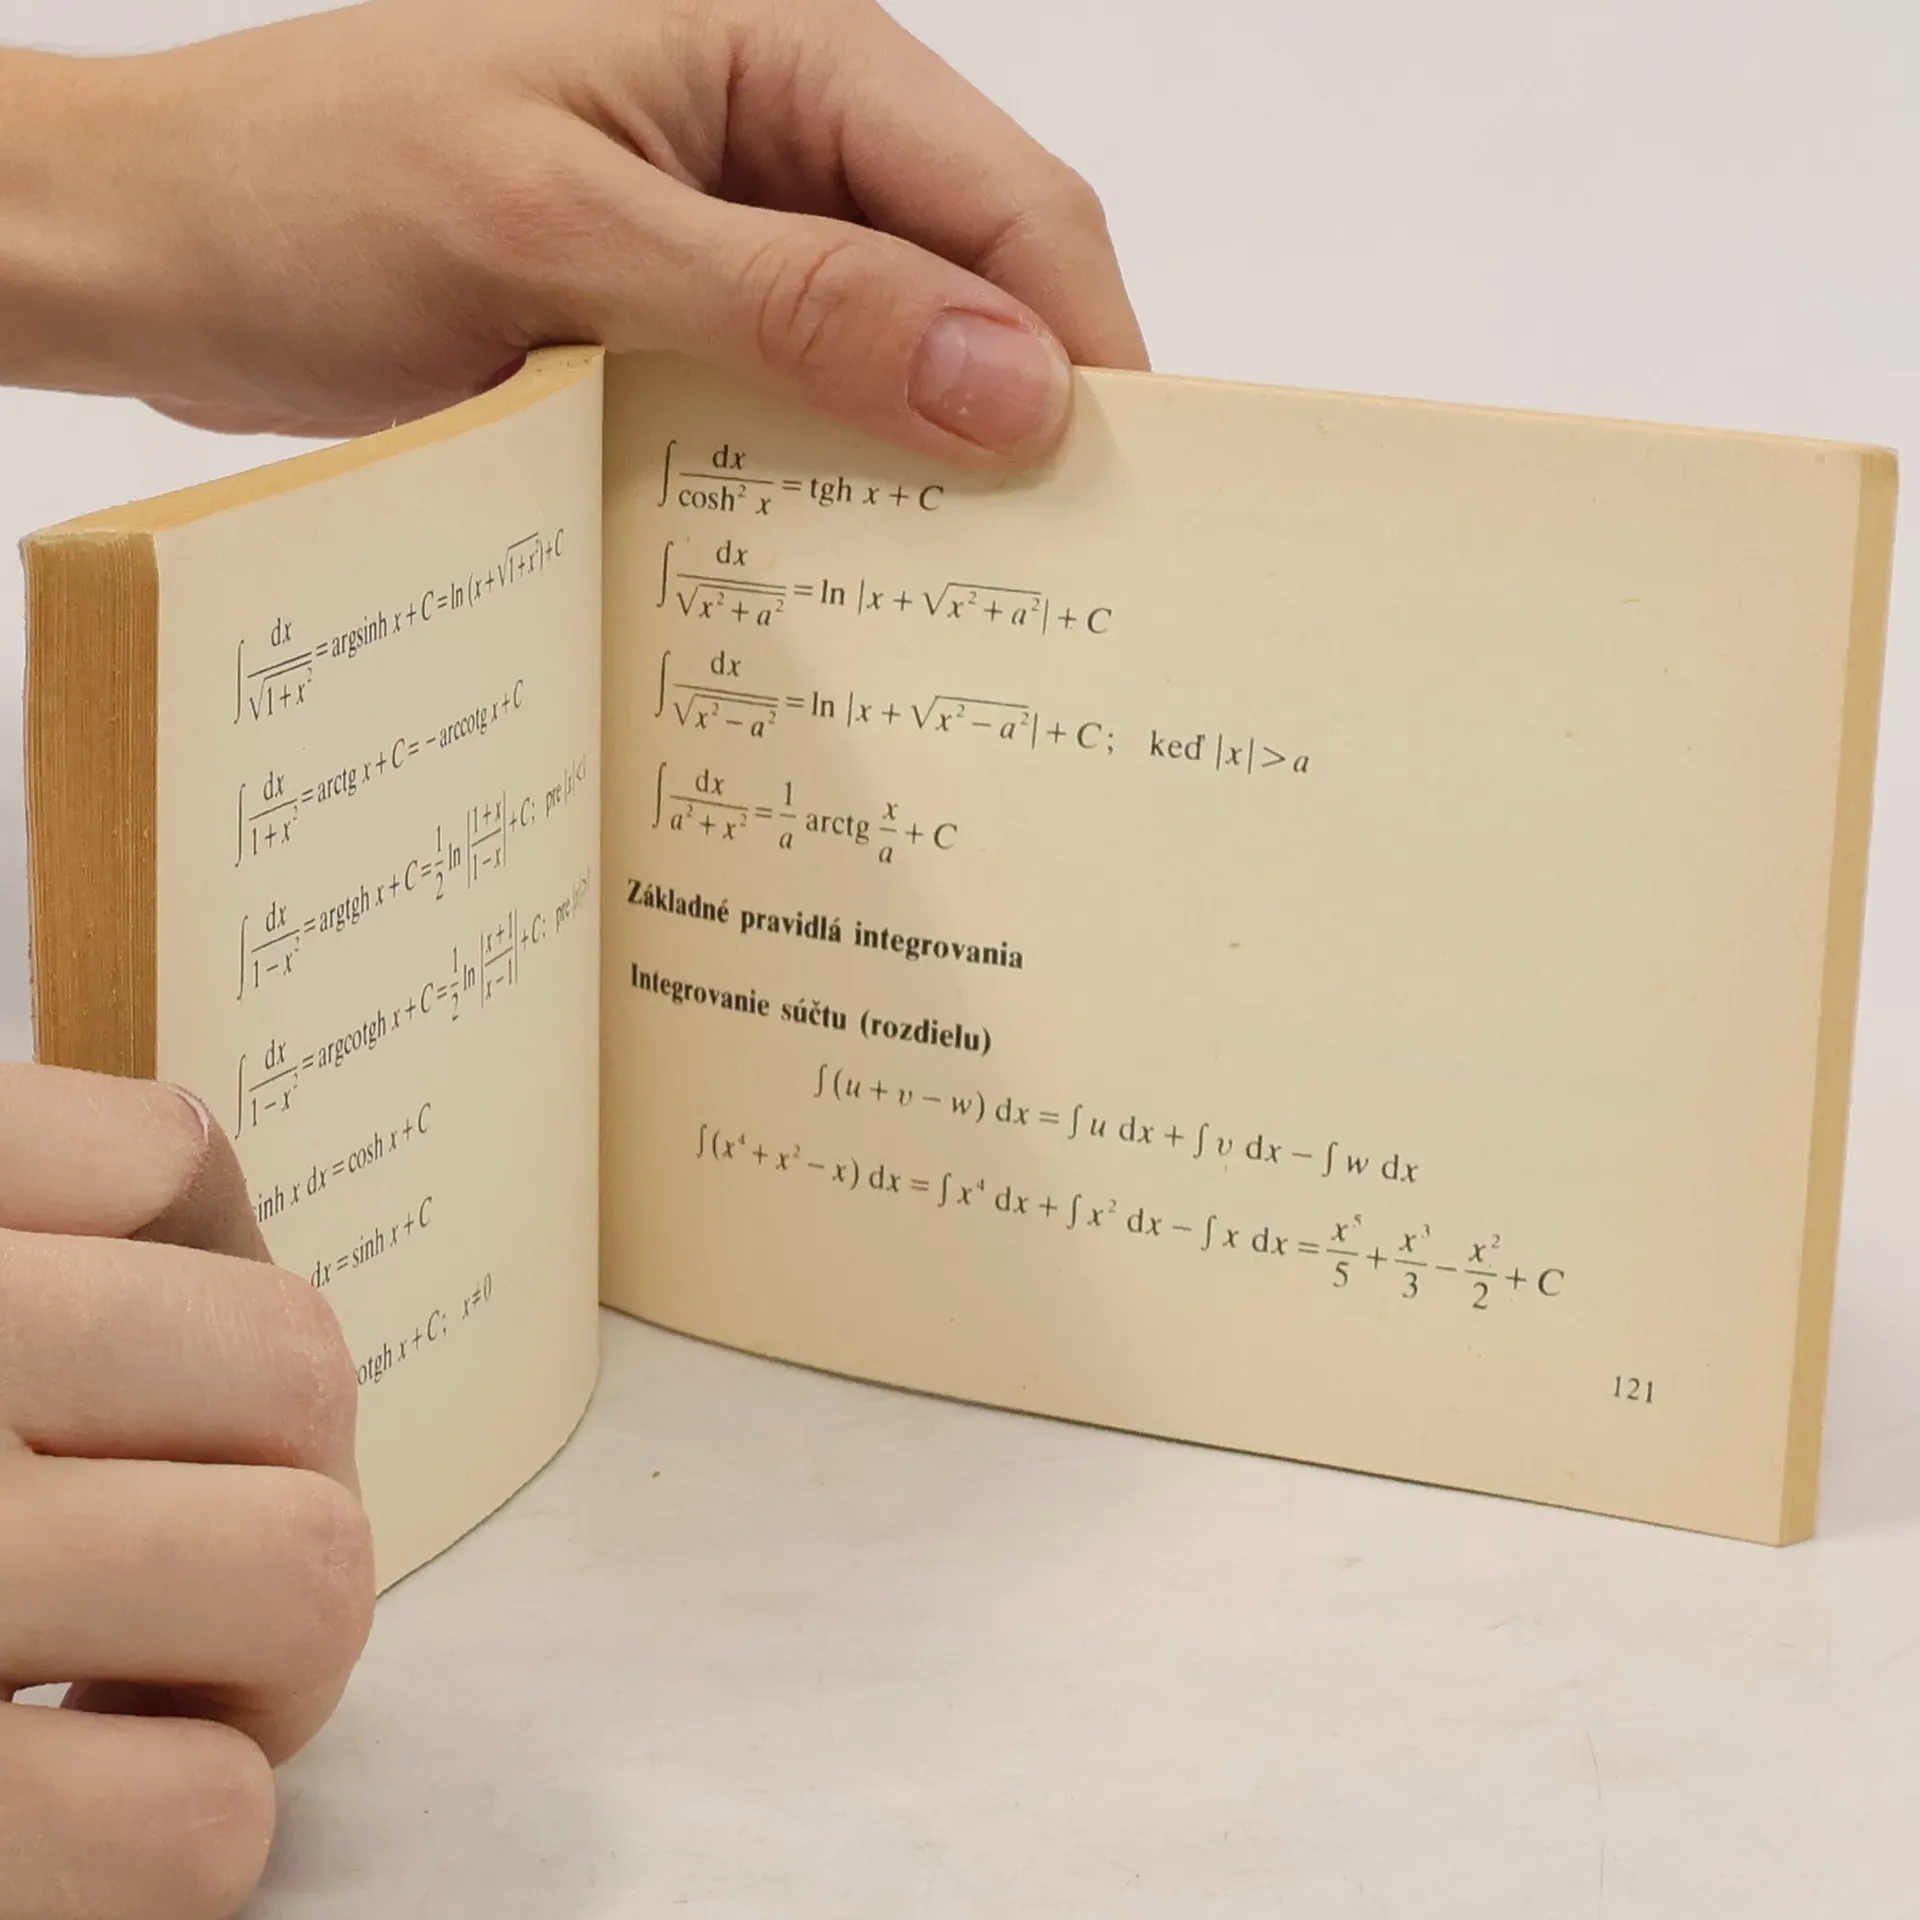 ∫ dx/√(1+x²) = argsinh x + C = ln (x + √(1+x²)) + C
∫ dx/(1+x²) = arctg x + C = −arccotg x + C
∫ dx/(1−x²) = argtgh x + C = 1/2 ln |(1+x)/(1−x)| + C; pre |x|<1
∫ dx/(1−x²) = argcotgh x + C = 1/2 ln |(x+1)/(x−1)| + C; pre |x|>
sinh x dx = cosh x + C
dx = sinh x + C
otgh x + C; x≠0
∫ dx/cosh² x = tgh x + C
∫ dx/√(x²+a²) = ln |x + √(x²+a²)| + C
∫ dx/√(x²−a²) = ln |x + √(x²−a²)| + C; keď |x| > a
∫ dx/(a²+x²) = 1/a arctg x/a + C
Základné pravidlá integrovania
Integrovanie súčtu (rozdielu)
∫(u + v − w) dx = ∫ u dx + ∫ v dx − ∫ w dx
∫(x⁴ + x² − x) dx = ∫ x⁴ dx + ∫ x² dx − ∫ x dx = x⁵/5 + x³/3 − x²/2 + C
121